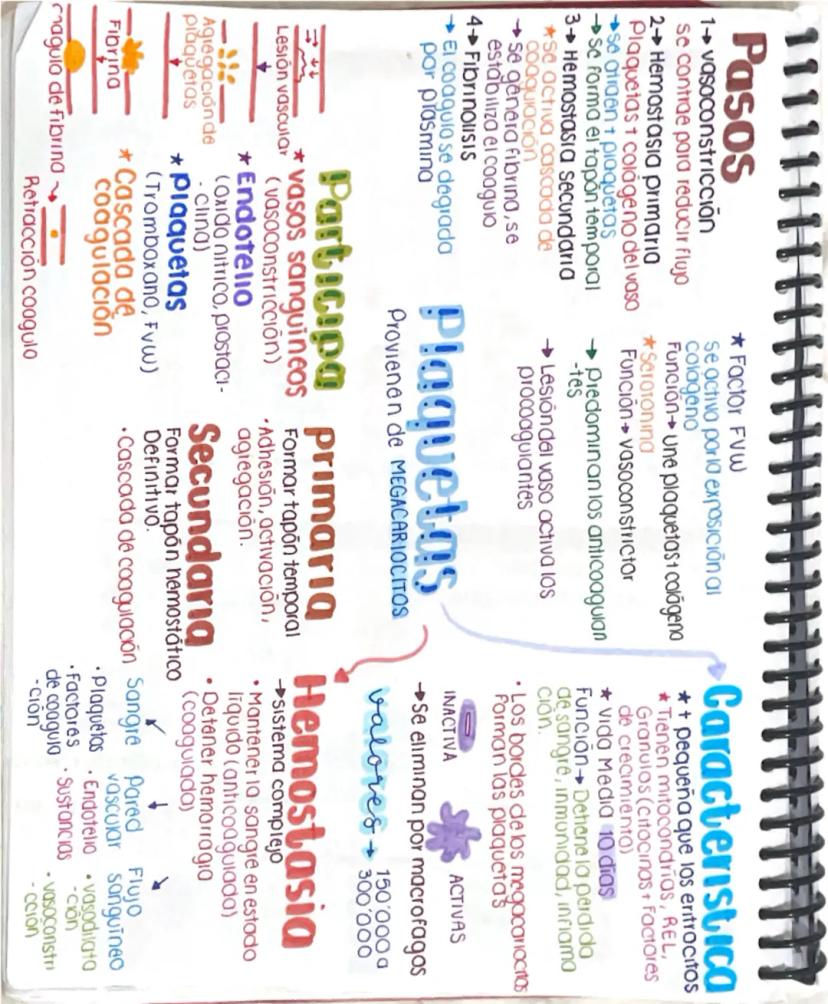 Pasos
1→ vasoconstricción
se contrae para reducir flujo
2→ Hemostasia primaria
Plaquetas + colágeno del vaso
→ se atraen + plaquetas
→ se forma el tapón temporal
3→ Hemostasia secundaria
★ se activa cascada de
coagulación
→ se genera fibrina, se
estabiliza el coagulo
4→ Fibrinolisis
→ El coagulo se degrada
por plasmina
★ Factor FVW
se activa por la exposición al
colágeno
Función→ une plaquetas + colágeno
★ Serotonina
Función→ vasoconstrictor
→ Predominan los anticoagulan
-tes
→ Lesión del vaso activa los
procoaguiantes
Característica
★ + pequeña que los eritrocitos
★ Tienen mitocondrias, REL,
Granulos (citocinas + Factores
de crecimiento)
★ Vida Media 10 días
Función→ Detiene la perdida
de sangre, inmunidad, inflama
ción.
• Los bordes de los megacariocitos
Forman las plaquetas
INACTIVA
ACTIVAS
→ Se eliminan por macrofagos
valores → 150'000 a
300'000
Plaquetas
Provienen de MEGACARIOCITOS
Hemostasia
→ sistema complejo
• Mantener la sangre en estado
líquido (anticoagulada)
• Detener hemorragia
(coagulada)
Sangre
• Plaquetas
• Factores
de coagula
-ción
Pared
vascular
• Endotelio
• Sustancias
Flujo
sanguíneo
• vasodilata
-ción
• vasoconstri
-cción
primaria
Formar tapón temporal
• Adhesión, activación,
agregación.
Secundaria
Formar tapón hemostático
Definitivo.
• Cascada de coagulación
Participa
★ vasos sanguíneos
(vasoconstricción)
★ Endotelio
(óxido nítrico, prostaci-
-clina)
★ plaquetas
(Tromboxano, FVW)
★ Cascada de
coagulación
Lesión vascular
Agregación de
plaquetas
Fibrina
coagulo de fibrina
Retracción coagulo